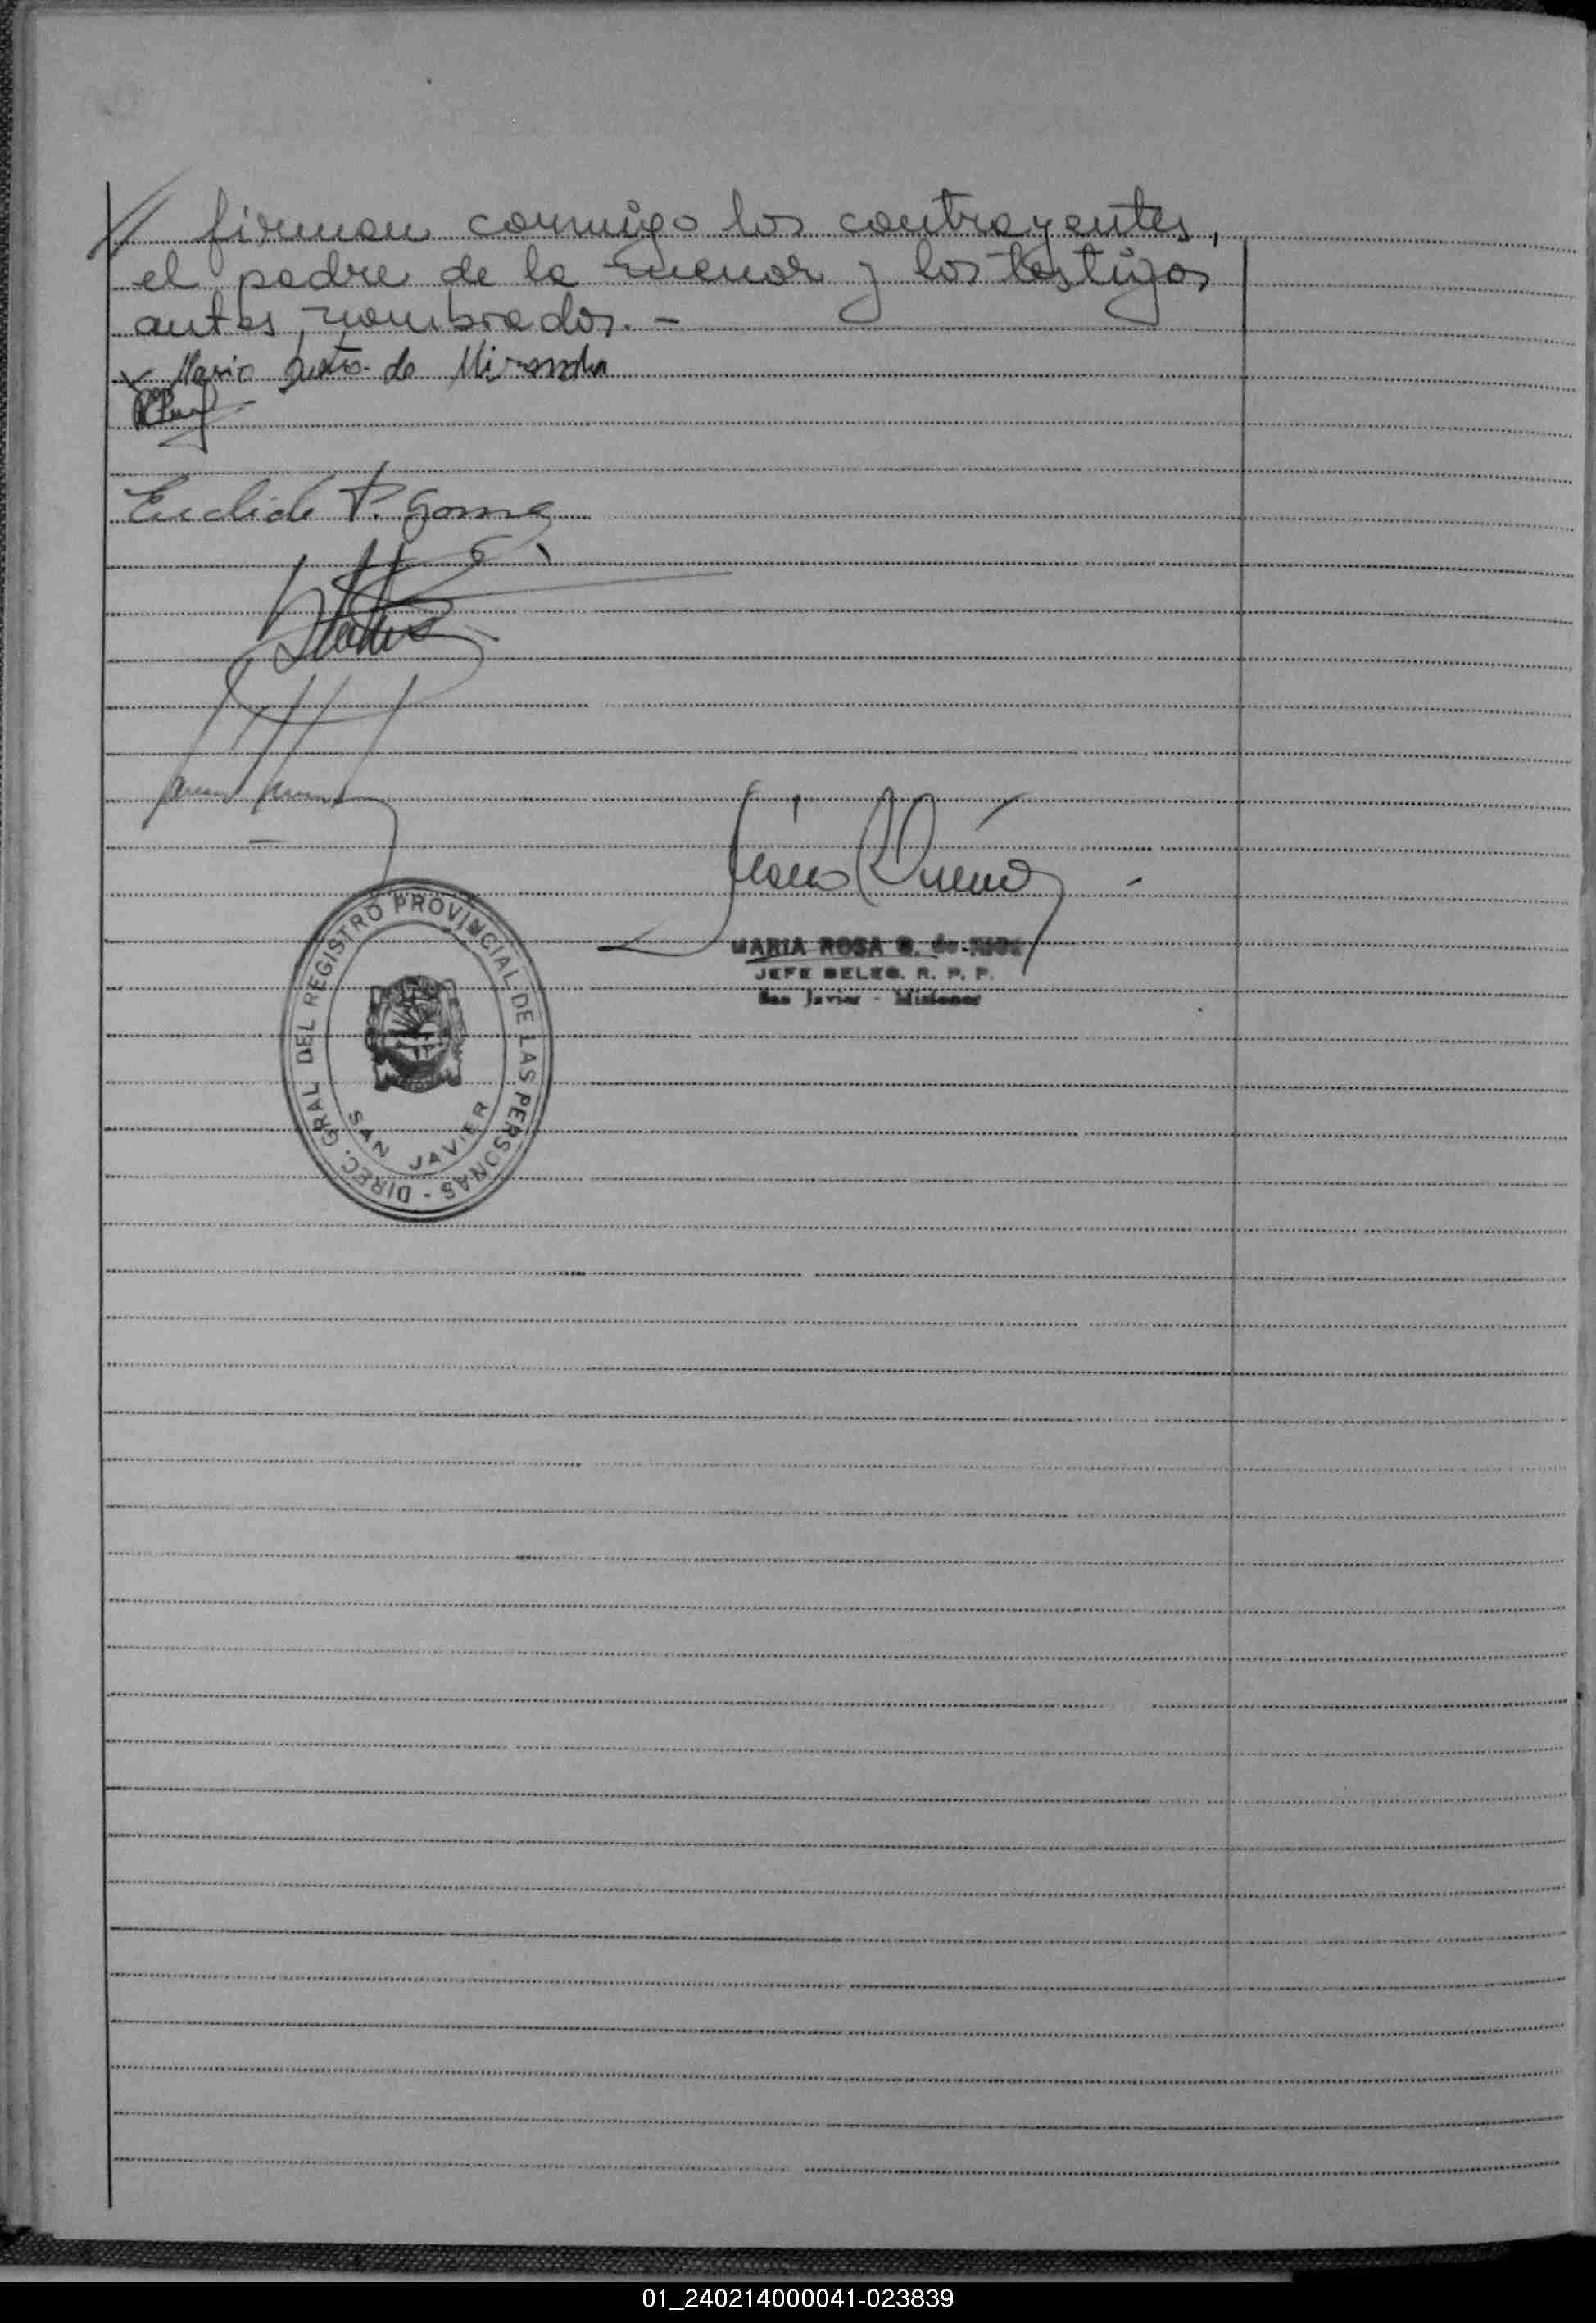 // firman conmigo los contrayentes,
el padre de la menor y los testigos
antes nombrados. -
x Mario de Miranda
Euclide P. Gomez
MARIA ROSA de
JEFE DELEG. R. P. P.
San Javier - Misiones
DIREC. GRAL DEL REGISTRO PROVINCIAL DE LAS PERSONAS -
SAN JAVIER
01_240214000041-023839